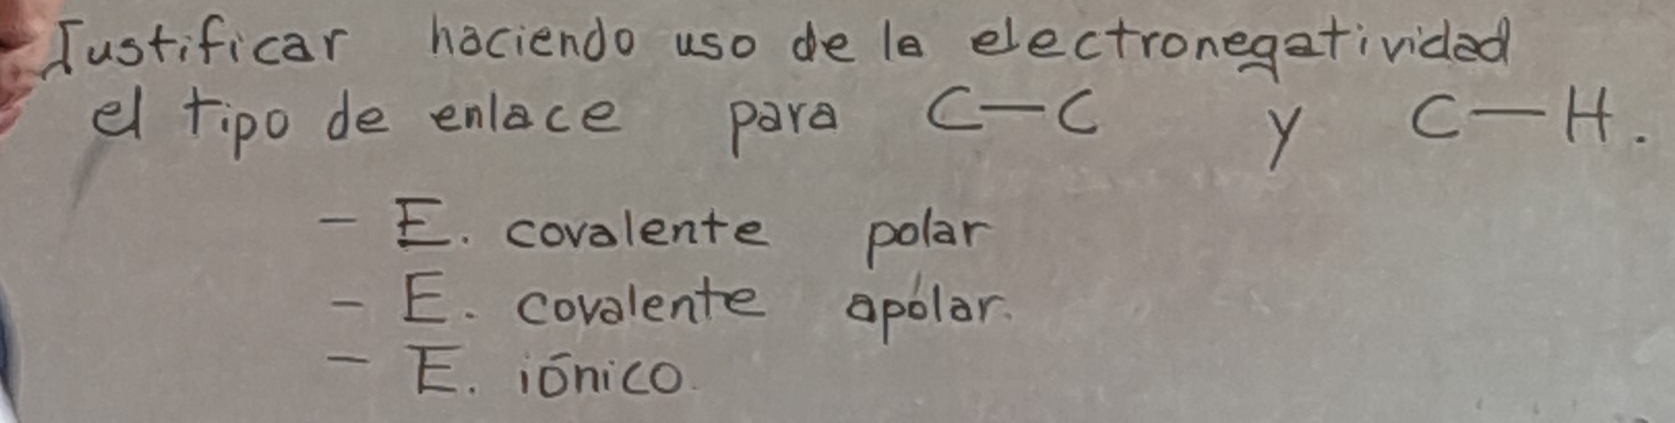 Justificar haciendo uso de la electronegatividad
el tipo de enlace para C-C y C-H.
- E. covalente polar
- E. covalente apólar.
- E. iónico.